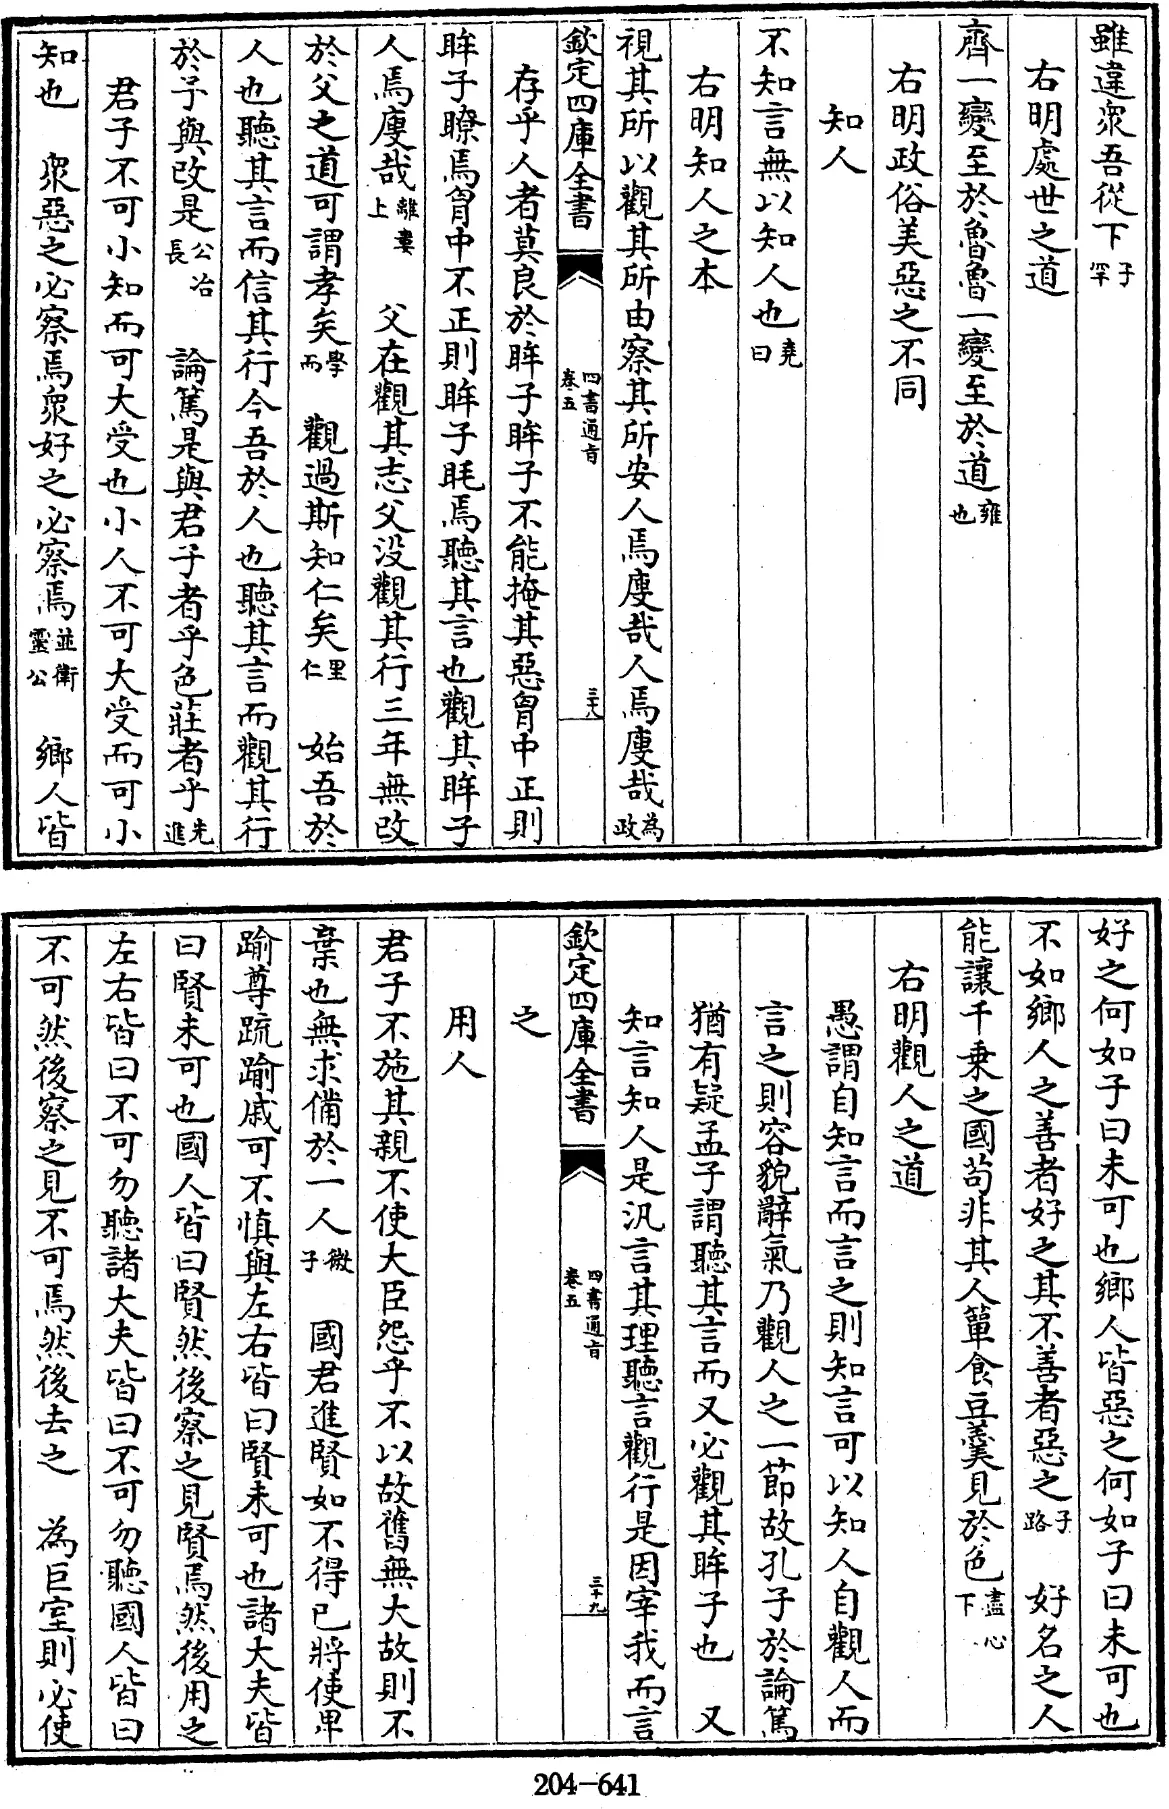 雖違衆吾從下子罕
右明處世之道
齊一變至於魯魯一變至於道雍也
右明政俗美惡之不同
知人
不知言無以知人也堯曰
右明知人之本
視其所以觀其所由察其所安人焉廋哉人焉廋哉為政
欽定四庫全書 四書通旨卷五 三十八
存乎人者莫良於眸子眸子不能掩其惡胷中正則
眸子瞭焉胷中不正則眸子眊焉聽其言也觀其眸子
人焉廋哉離婁上 父在觀其志父没觀其行三年無改
於父之道可謂孝矣學而 觀過斯知仁矣里仁 始吾於
人也聽其言而信其行今吾於人也聽其言而觀其行
於予與改是公冶長 論篤是與君子者乎色莊者乎先進
君子不可小知而可大受也小人不可大受而可小
知也 衆惡之必察焉衆好之必察焉並衛靈公 鄉人皆
好之何如子曰未可也鄉人皆惡之何如子曰未可也
不如鄉人之善者好之其不善者惡之子路 好名之人
能讓千乗之國苟非其人簞食豆羹見於色盡心下
右明觀人之道
愚謂自知言而言之則知言可以知人自觀人而
言之則容貌辭氣乃觀人之一節故孔子於論篤
猶有疑孟子謂聽其言而又必觀其眸子也 又
知言知人是汎言其理聽言觀行是因宰我而言
欽定四庫全書 四書通旨卷五 三十九
之
用人
君子不施其親不使大臣怨乎不以故舊無大故則不
棄也無求備於一人微子 國君進賢如不得已將使卑
踰尊疏踰戚可不慎與左右皆曰賢未可也諸大夫皆
曰賢未可也國人皆曰賢然後察之見賢焉然後用之
左右皆曰不可勿聽諸大夫皆曰不可勿聽國人皆曰
不可然後察之見不可焉然後去之 為巨室則必使
204-641